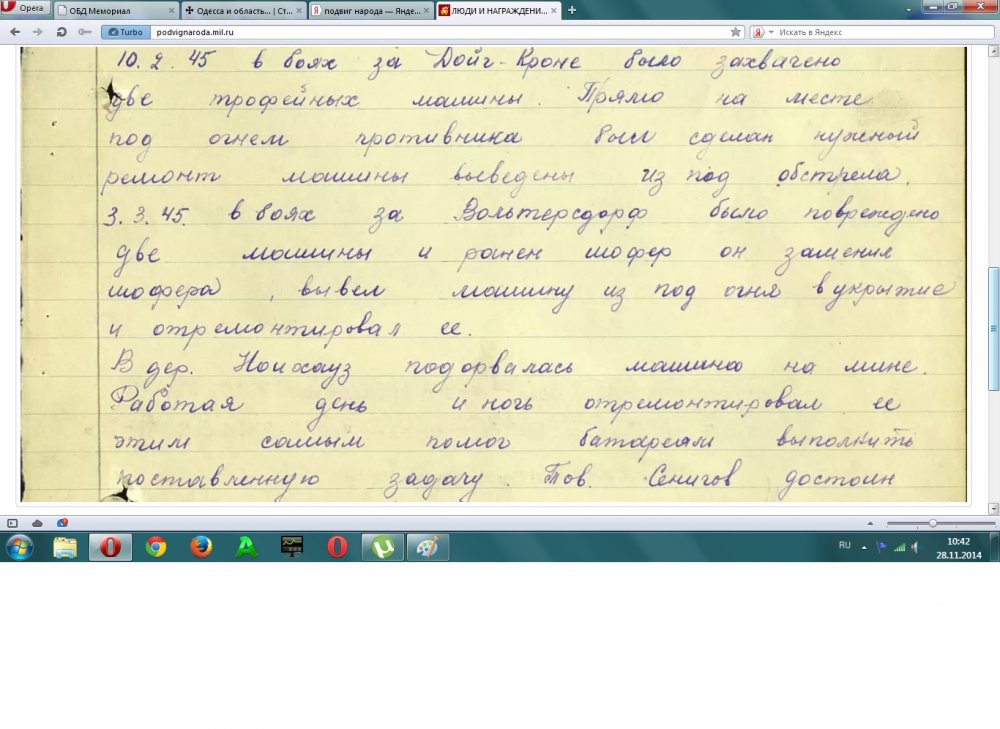 Opera
ОБД Мемориал
Одесса и область... | Ст...
подвиг народа — Янде...
ЛЮДИ И НАГРАЖДЕНИ...
Turbo
podvignaroda.mil.ru
Искать в Яндекс
10.2.45 в боях за Дойч-Кроне было захвачено
две трофейных машины. Прямо на месте
под огнем противника был сделан нужный
ремонт машины выведены из под обстрела.
3.3.45. в боях за Вольтерсдорф было повреждено
две машины и ранен шофер он заменил
шофера, вывел машину из под огня в укрытие
и отремонтировал ее.
В дер. Нойхауз подорвалась машина на мине.
Работая день и ночь отремонтировал ее
этим самым помог батареям выполнить
поставленную задачу. Тов. Сенигов достоин
RU
10:42
28.11.2014